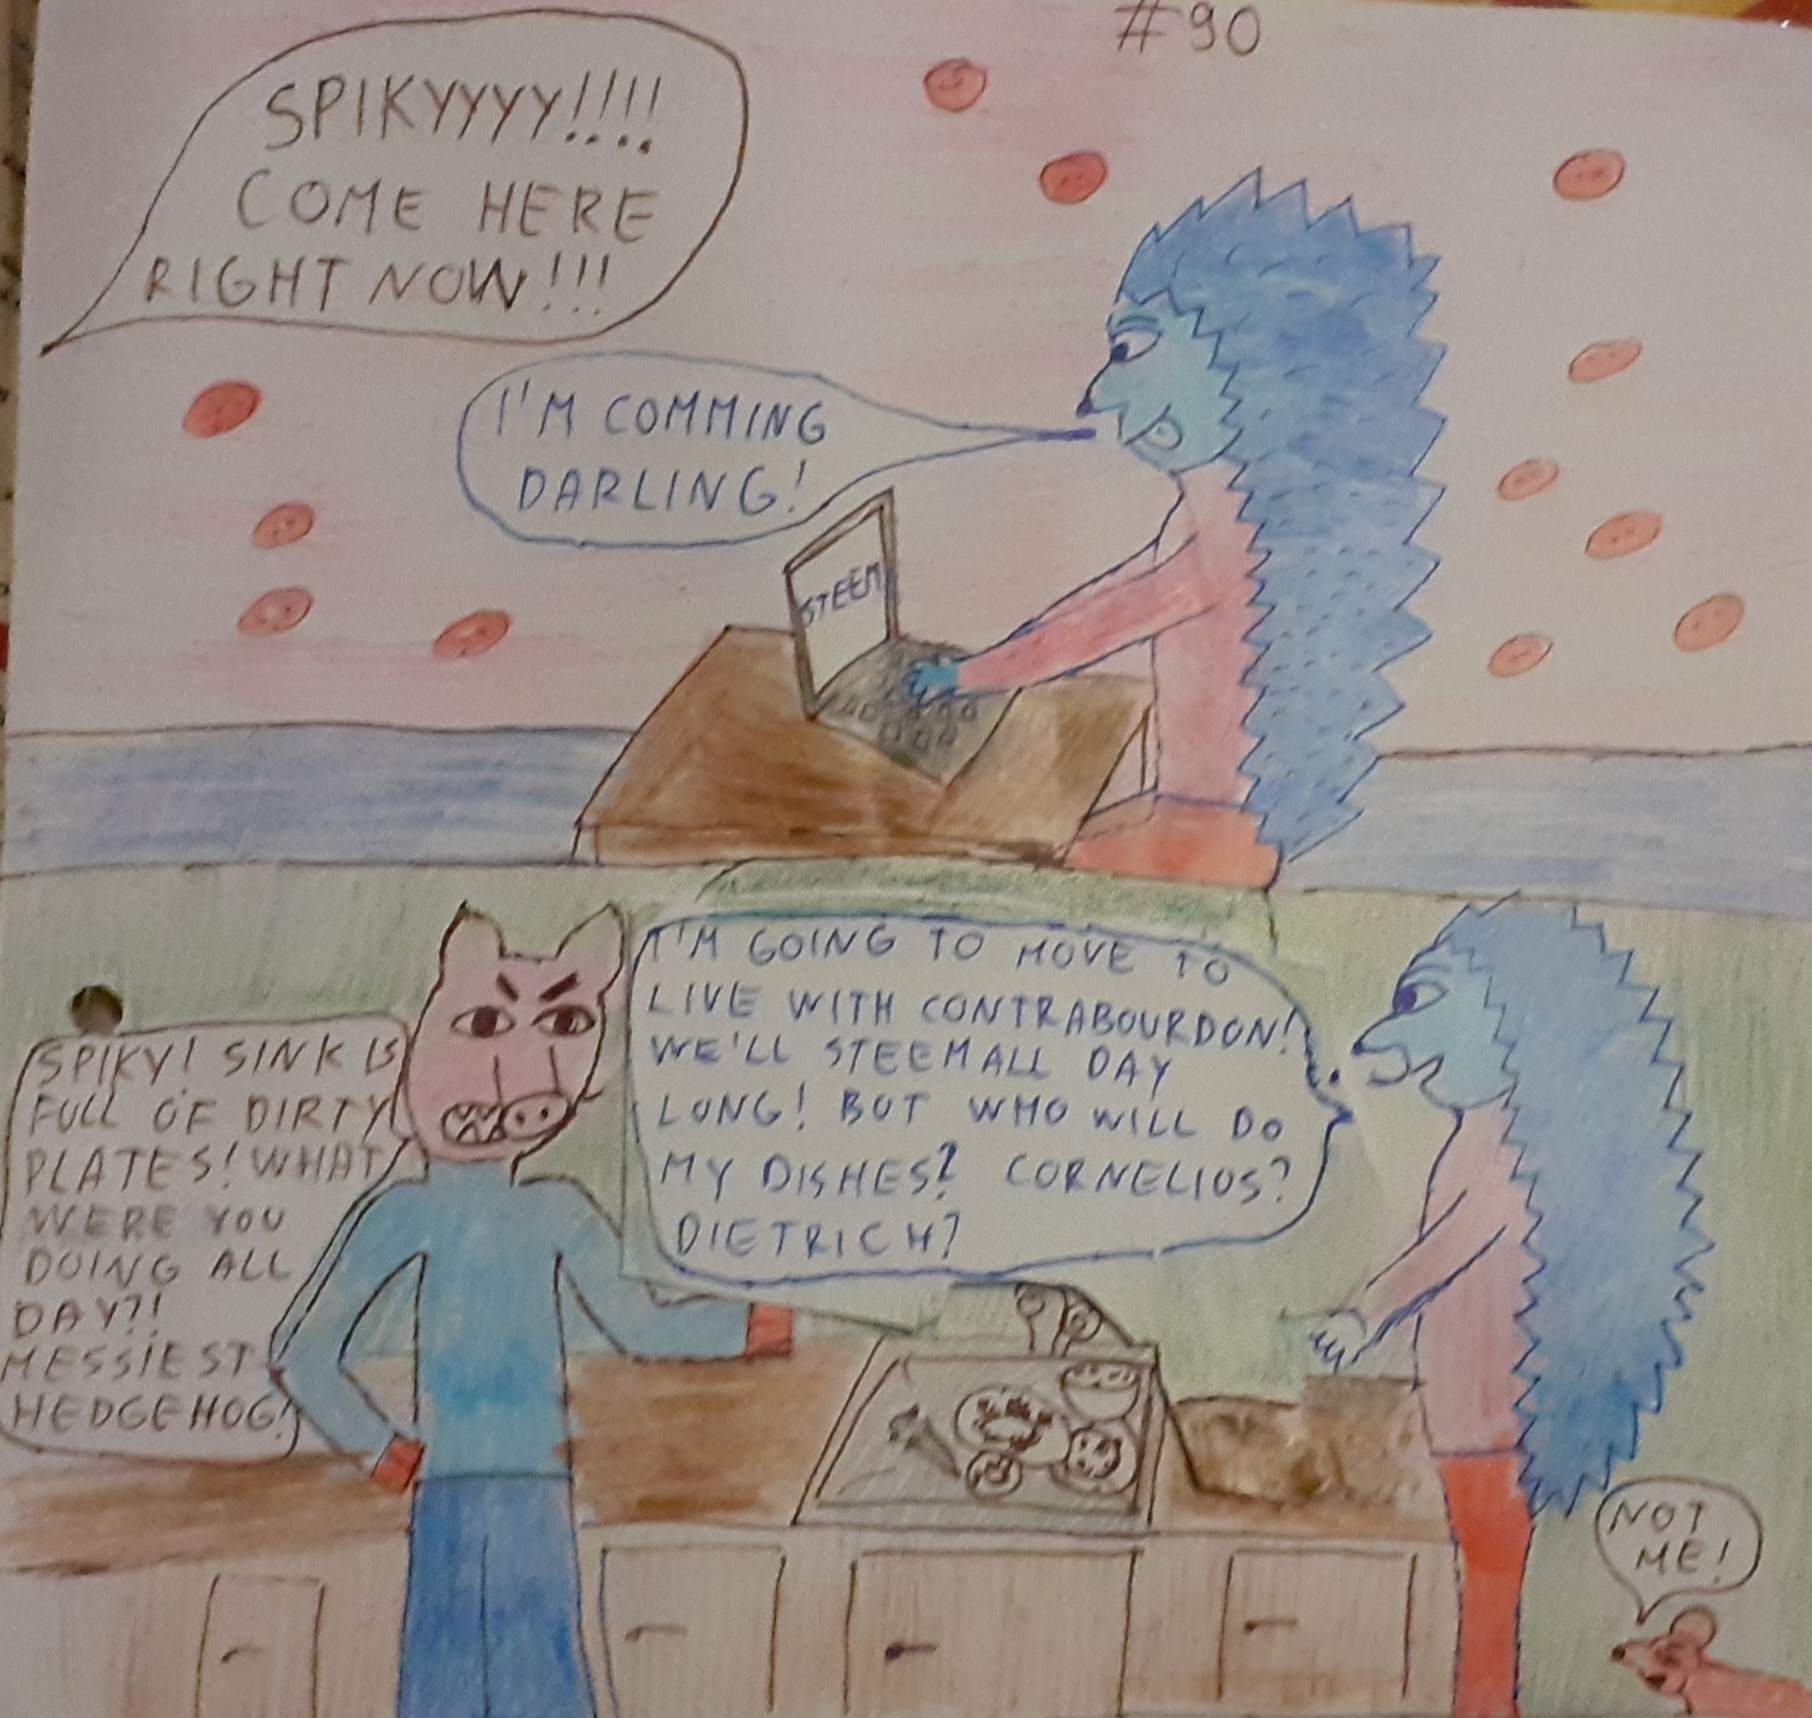 #90
SPIKYYYY!!!!
COME HERE
RIGHT NOW!!!
I'M COMMING
DARLING!
STEEM
SPIKY! SINK IS
FULL OF DIRTY
PLATES! WHAT
WERE YOU
DOING ALL
DAY?!
MESSIEST
HEDGEHOG!
I'M GOING TO MOVE TO
LIVE WITH CONTRABOURDON!
WE'LL STEEM ALL DAY
LONG! BUT WHO WILL DO
MY DISHES? CORNELIUS?
DIETRICH?
NOT
ME!